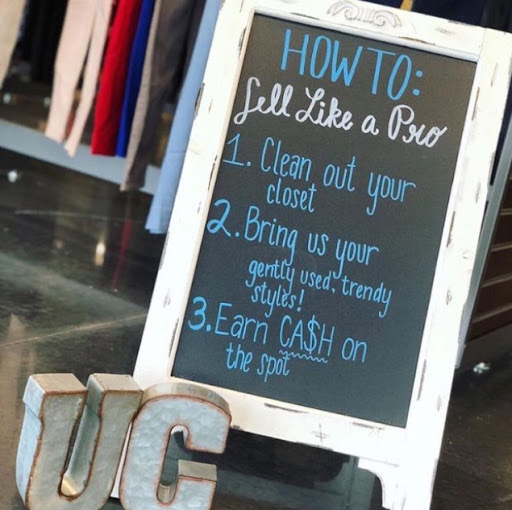 HOW TO:
Sell Like a Pro
1. Clean out your
closet
2. Bring us your
gently used, trendy
styles!
3. Earn CA$H on
the spot
UC